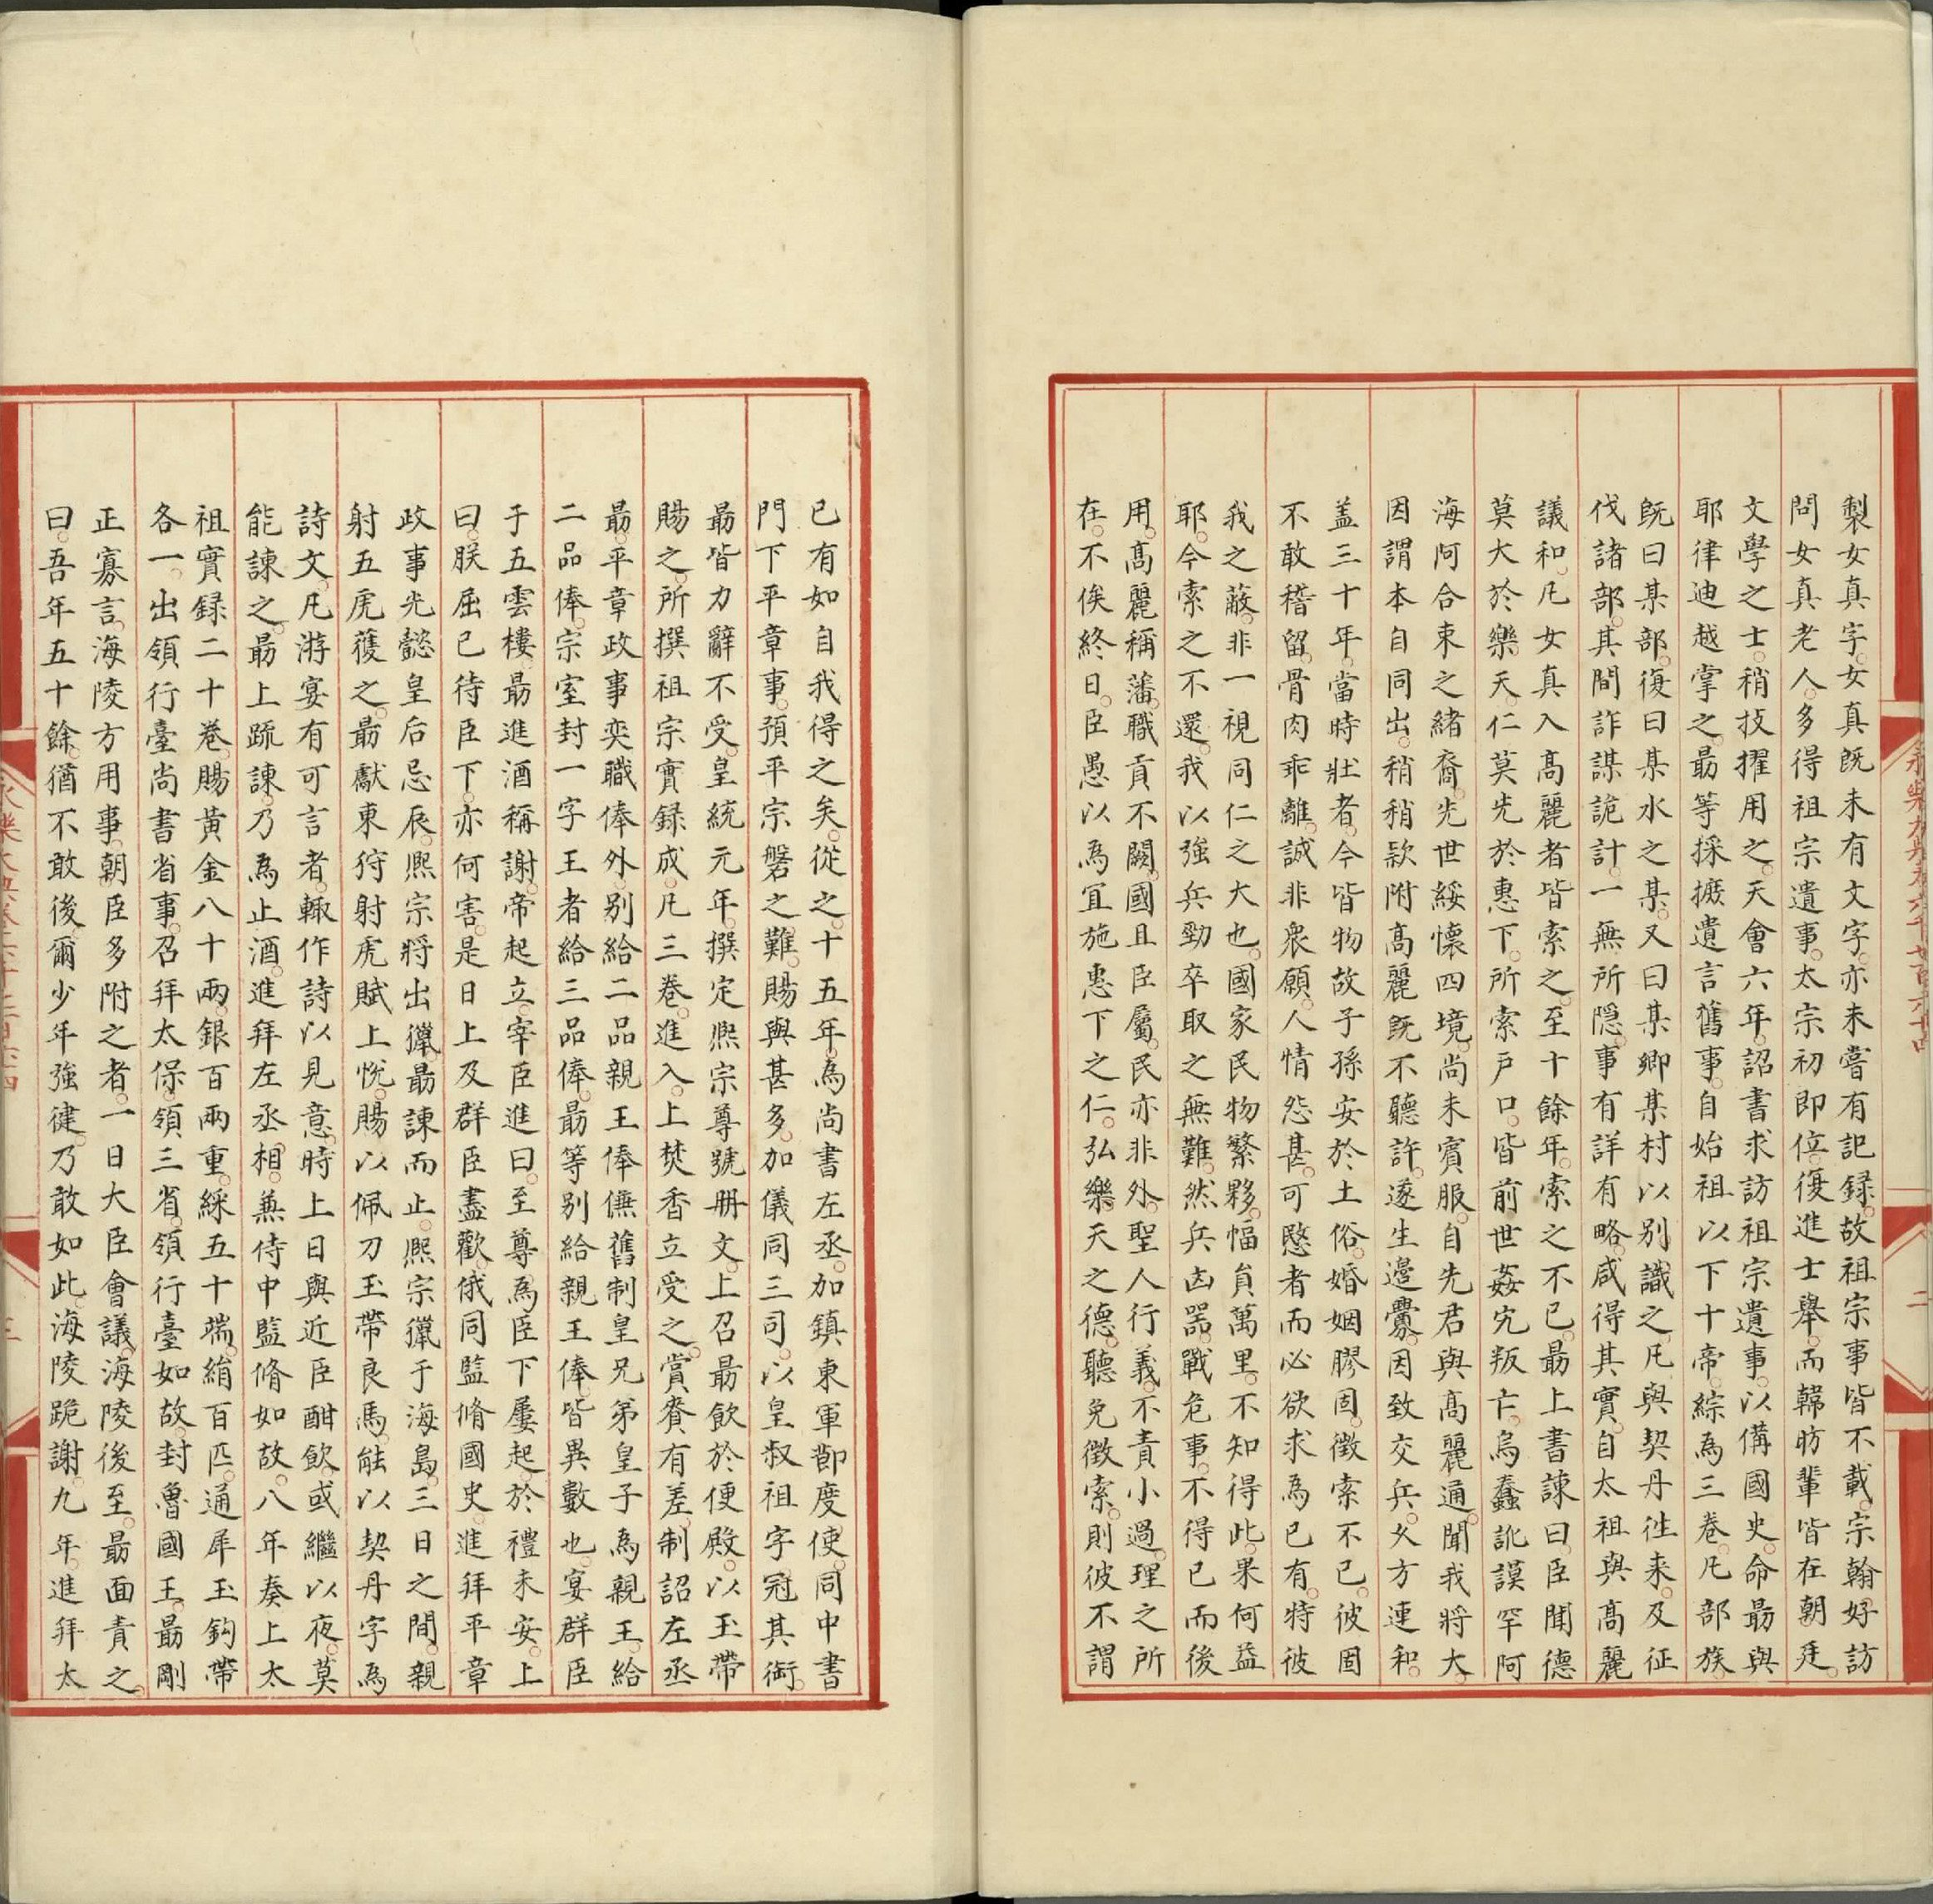 製女真字。女真既未有文字。亦未嘗有記録。故祖宗事皆不載。宗翰好訪
問女真老人。多得祖宗遺事。太宗初即位。復進士舉。而韓昉輩皆在朝廷。
文學之士。稍拔擢用之。天會六年。詔書求訪祖宗遺事。以備國史。命勗與
耶律迪越掌之。勗等採摭遺言舊事。自始祖以下十帝。綜為三卷。凡部族。
既曰某部。復曰某水之某。又曰某鄉某村以别識之。凡與契丹徃来。及征
伐諸部。其間詐謀詭計。一無所隠。事有詳有略。咸得其實。自太祖與髙麗
議和。凡女真入髙麗者皆索之。至十餘年。索之不已。勗上書諫曰。臣聞德
莫大於樂天。仁莫先於惠下。所索户口。皆前世姦宄叛亡。烏蠢訛謨罕阿
海阿合束之緒裔。先世綏懷四境。尚未賓服。自先君與髙麗通。聞我將大。
因謂本自同出。稍稍欵附髙麗既不聽許。遂生邉釁。因致交兵。乆方連和。
盖三十年。當時壯者。今皆物故子孫安於土俗。婚姻膠固。徴索不已。彼固
不敢稽留。骨肉乖離。誠非衆願。人情怨甚。可愍者而必欲求為已有。特彼
我之蔽。非一視同仁之大也。國家民物繁夥。幅員萬里。不知得此。果何益
耶。今索之不還。我以強兵勁卒取之無難。然兵凶器。戰危事。不得已而後
用。髙麗稱藩。職貢不闕。國且臣屬。民亦非外。聖人行義。不責小過。理之所
在。不俟終日。臣愚以為宜施惠下之仁。弘樂天之德。聽免徴索。則彼不謂
已有如自我得之矣。從之。十五年。為尚書左丞。加鎮東軍節度使。同中書
門下平章事。預平宗磐之難。賜與甚多。加儀同三司。以皇叔祖字冠其銜。
勗皆力辭不受。皇統元年。撰定熈宗尊號册文。上召勗飲於便殿。以玉帶
賜之。所撰祖宗實録成。凡三卷。進入。上焚香立受之。賞賚有差。制詔左丞
勗。平章政事奕職俸外。别給二品親王俸傔。舊制皇兄弟皇子為親王。給
二品俸。宗室封一字王者給三品俸。勗等别給親王俸。皆異數也。宴群臣
于五雲樓。勗進酒稱謝。帝起立。宰臣進曰。至尊為臣下屢起。於禮未安。上
曰。朕屈已待臣下。亦何害。是日上及群臣盡歡。俄同監脩國史。進拜平章
政事。光懿皇后忌辰。熈宗將出獵。勗諫而止。熈宗獵于海島。三日之間。親
射五虎。獲之。勗獻東狩射虎賦。上悦。賜以佩刀玉帶良馬。能以契丹字為
詩文。凡游宴有可言者。輙作詩以見意。時上日與近臣酣飲。或繼以夜。莫
能諫之。勗上疏諫。乃為止酒。進拜左丞相。兼侍中監脩如故。八年奏上太
祖實録二十卷。賜黄金八十兩。銀百兩重。綵五十端。絹百匹。通犀玉鈎帶
各一。出領行臺尚書省事。召拜太保。領三省。領行臺如故。封魯國王。勗剛
正寡言。海陵方用事。朝臣多附之者。一日大臣會議。海陵後至。勗面責之。
曰。吾年五十餘。猶不敢後。爾少年強健。乃敢如此。海陵跪謝。九年。進拜太